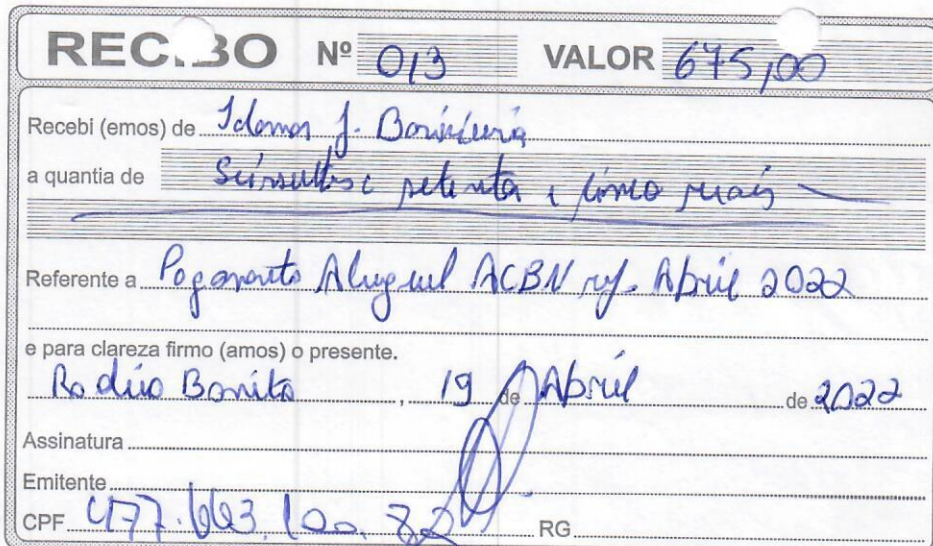 RECIBO Nº 013 VALOR 675,00
Recebi (emos) de J.
a quantia de setenta e cinco reais
Referente a Pagamento Aluguel ACBN ref. Abril 2022
e para clareza firmo (amos) o presente.
Rodeio Bonito, 19 de Abril de 2022
Assinatura
Emitente
CPF 477.663.100.82 RG